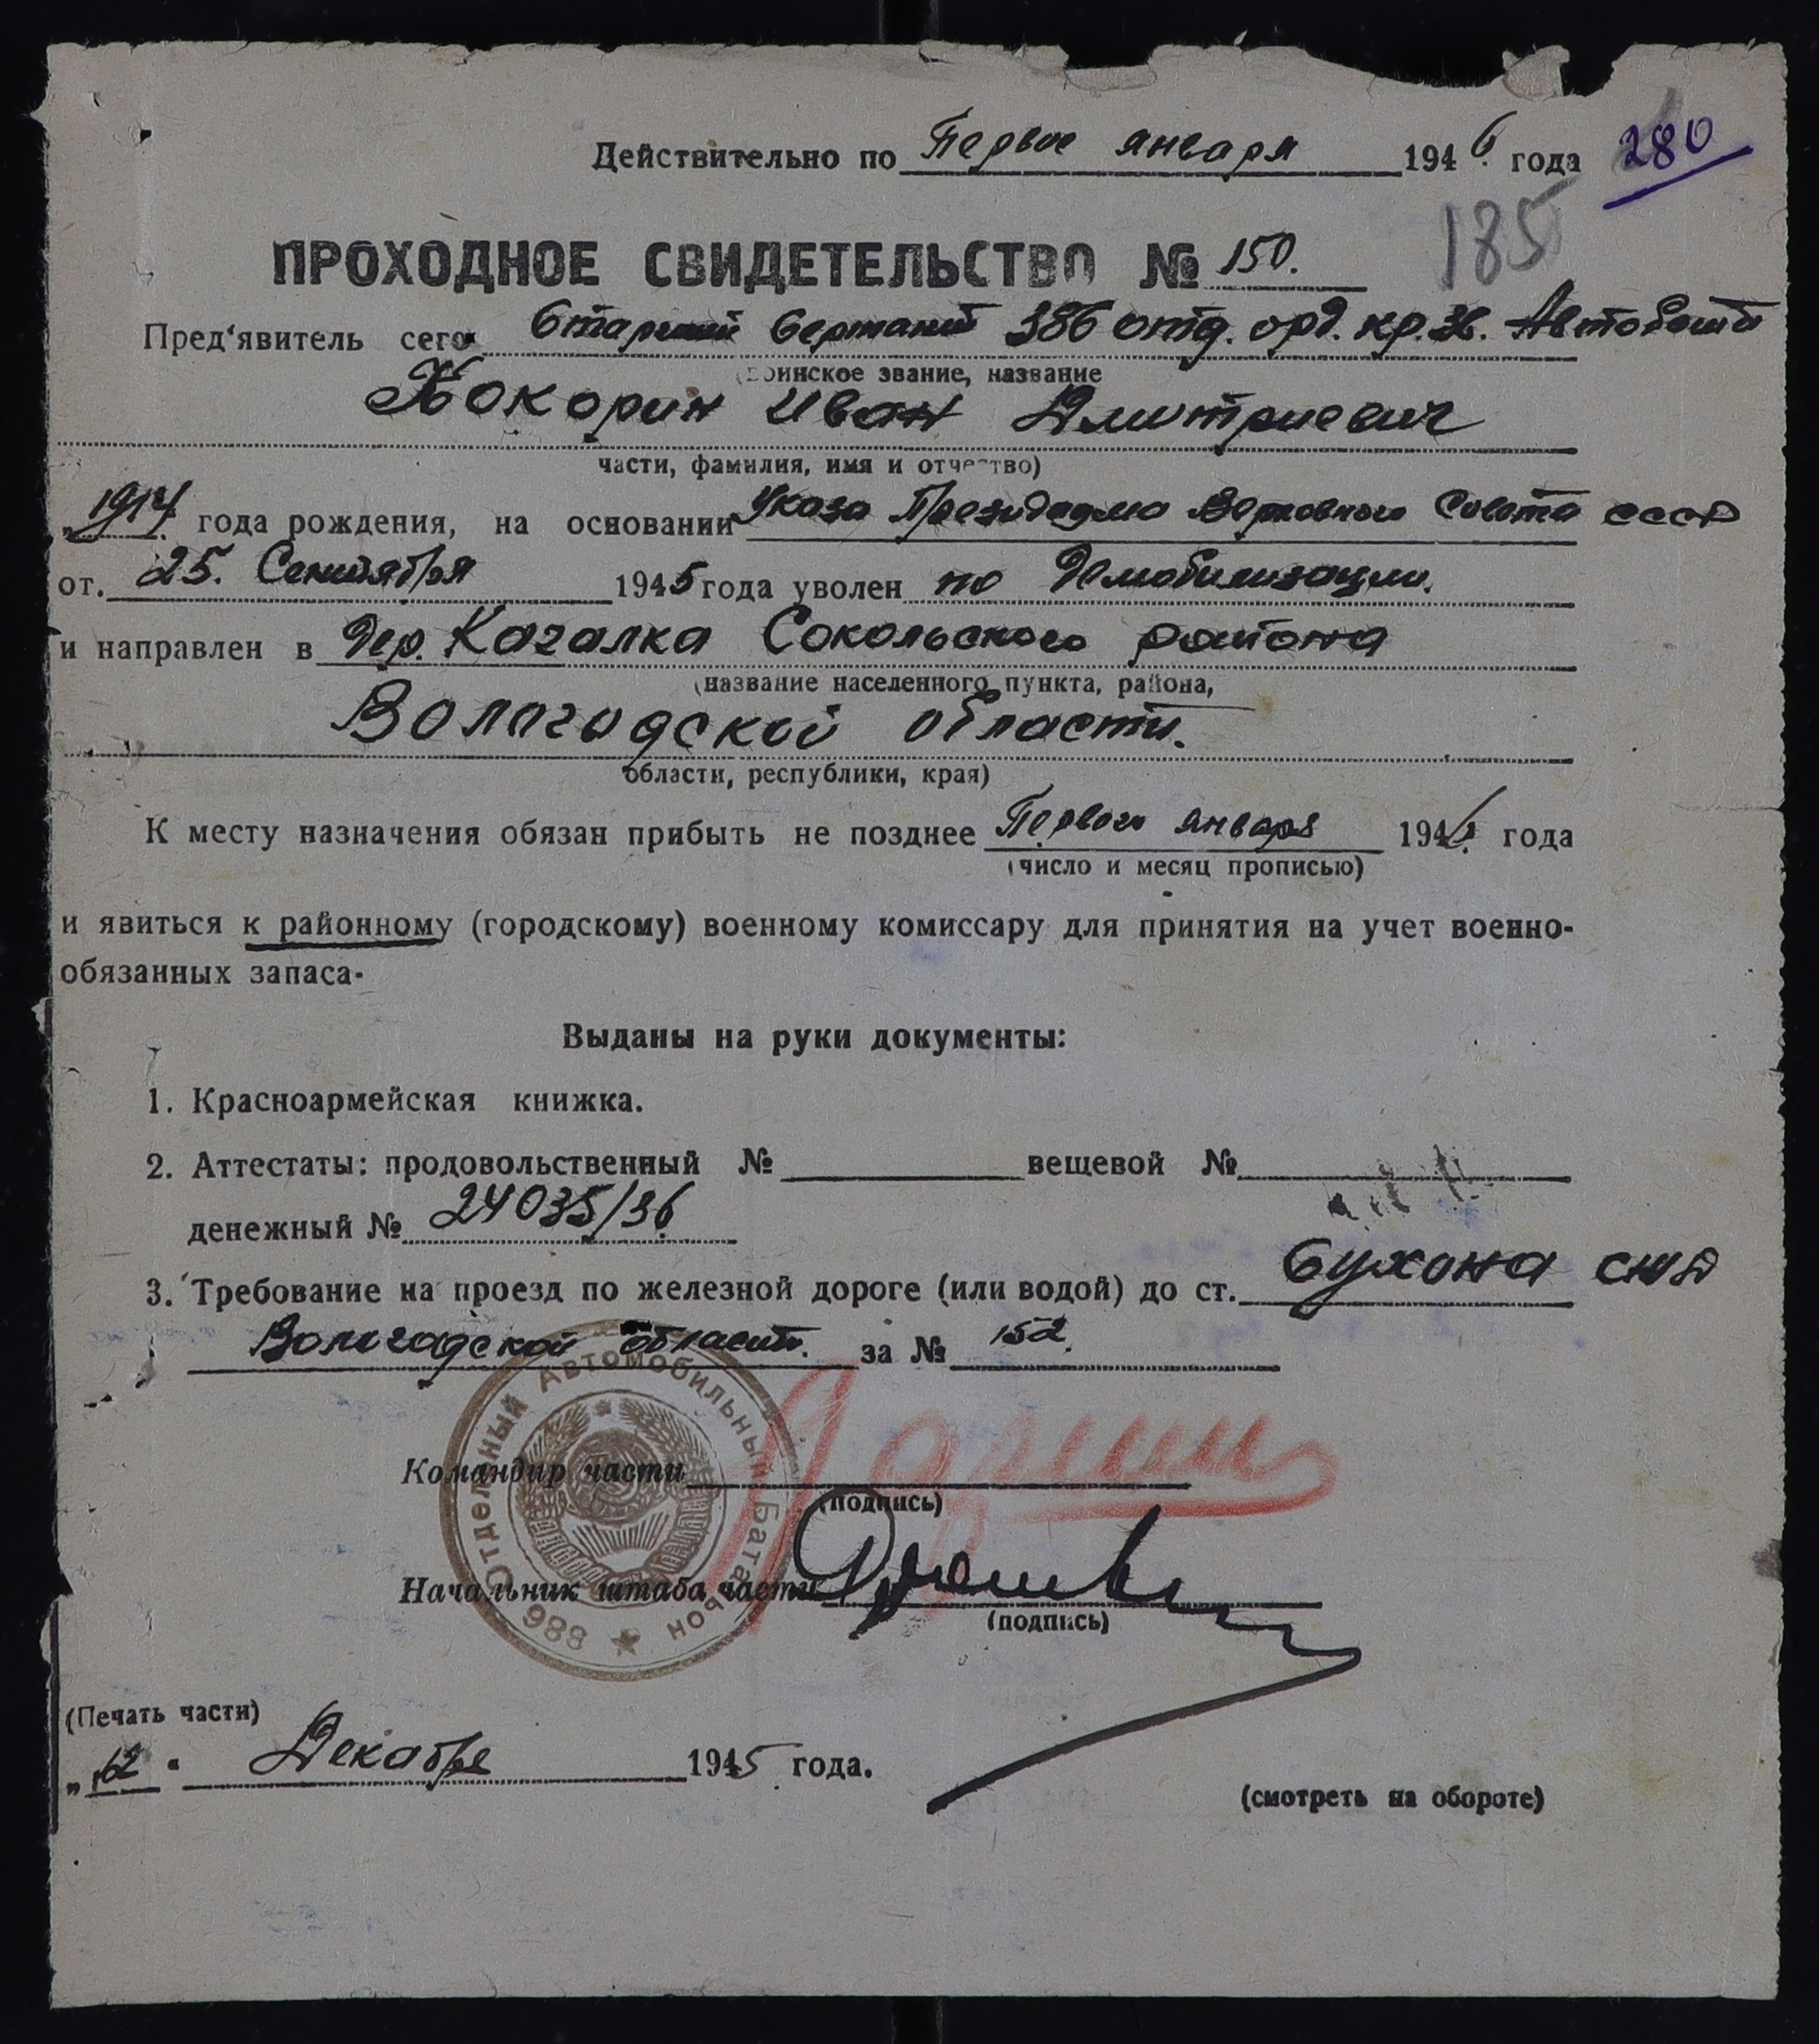 Действительно по Первое января 1946. года 280
185
ПРОХОДНОЕ СВИДЕТЕЛЬСТВО № 150.
Пред'явитель сего Старший Сержант 386 отд. орд. кр. Зв. Автобат
(воинское звание, название
Кокорин Иван Дмитриевич
части, фамилия, имя и отчество)
„1914 года рождения, на основании Указа Президиума Верховного Совета СССР
от. 25. Сентября 1945 года уволен по Демобилизации.
и направлен в Дер. Качалка Сокольского района
(название населенного пункта, района,
Вологодской области.
области, республики, края)
К месту назначения обязан прибыть не позднее Первого января 1946. года
(число и месяц прописью)
и явиться к районному (городскому) военному комиссару для принятия на учет военно-
обязанных запаса.
Выданы на руки документы:
1. Красноармейская книжка.
2. Аттестаты: продовольственный № вещевой №
денежный № 24035/36
3. Требование на проезд по железной дороге (или водой) до ст. Сухона
Вологодской области. за № 152.
Отдельный Автомобильный Батальон
Командир части
(подпись)
Начальник штаба части
(подпись)
(Печать части)
„12" Декабря 1945 года.
(смотреть на обороте)